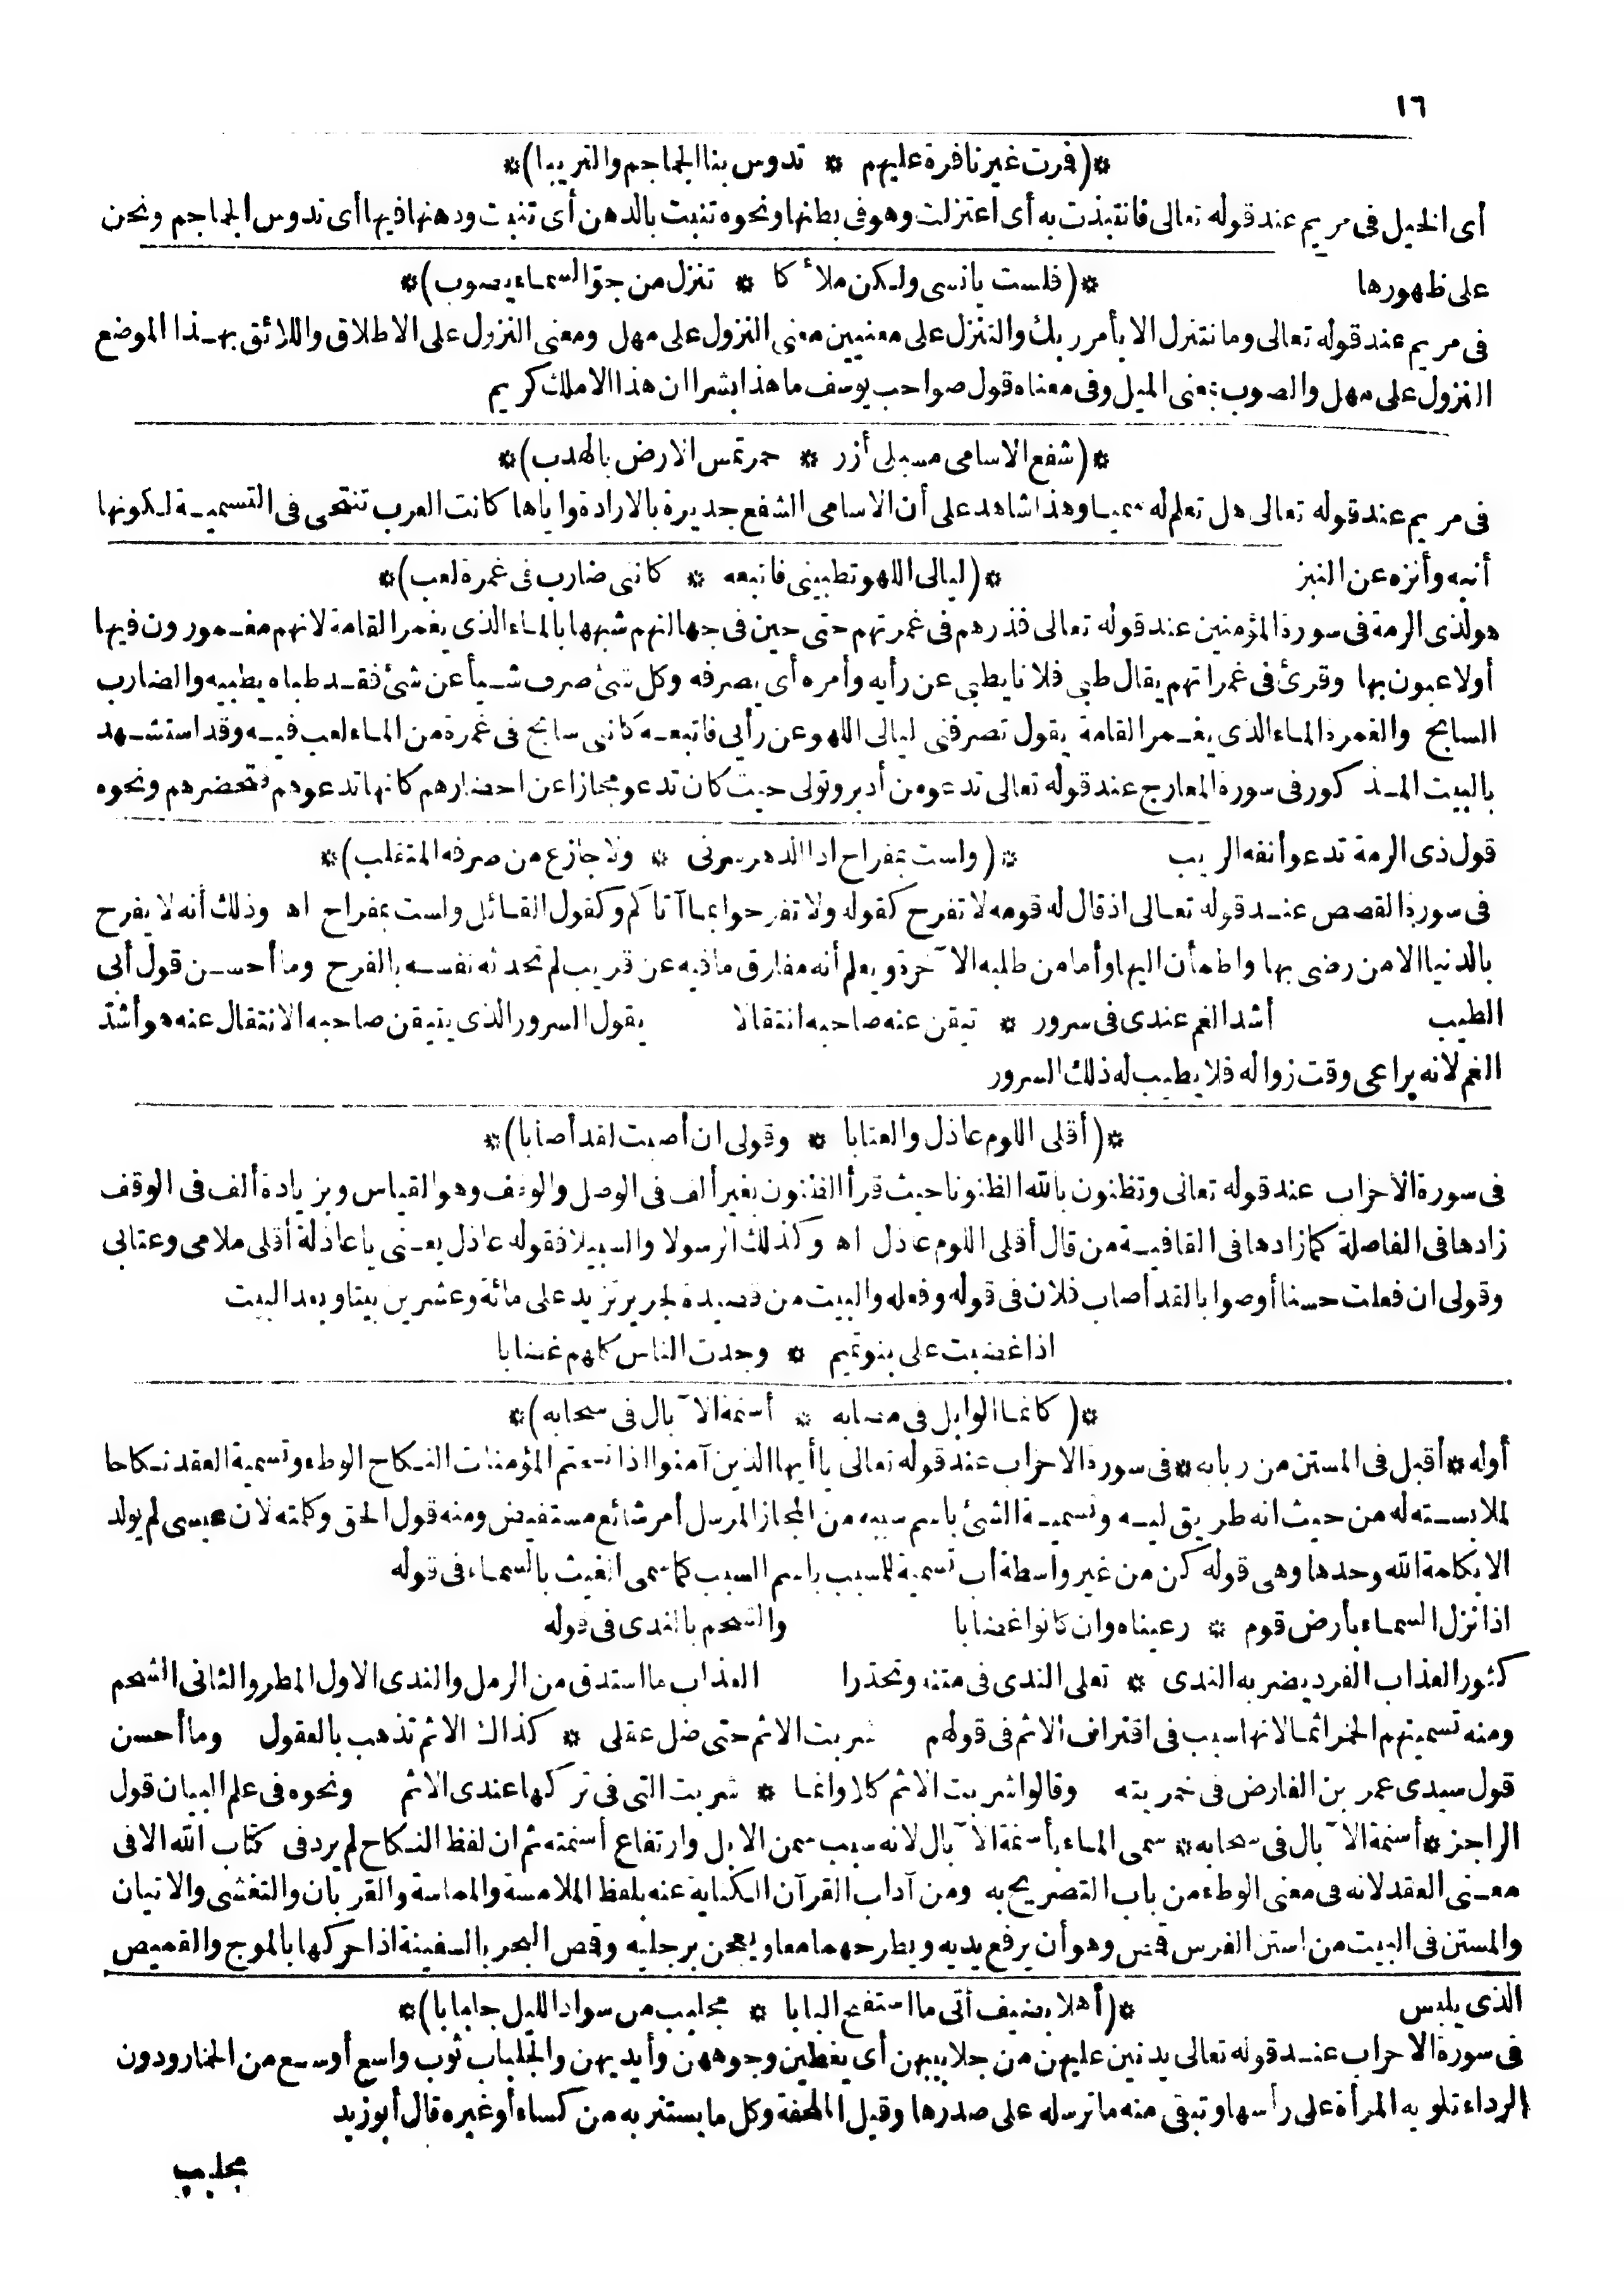 ١٦
*(فمرت غير نافرة عليهم * تدوس بنا الجماجم والتريبا)*
أى الخيل فى مريم عند قوله تعالى فانتبذت به أى اعتزلت وهو فى بطنها ونحوه تنبت بالدهن أى تنبت ودهنها فيها أى تدوس الجماجم ونحن
على ظهورها *(فلست بانسى ولكن ملأكا * تنزل من جوّ السماء يصوب)*
فى مريم عند قوله تعالى وما نتنزل الا بأمر ربك والتنزل على معنيين معنى النزول على مهل ومعنى النزول على الاطلاق واللائق بهذا الموضع
النزول على مهل والصوب بمعنى الميل وفى معناه قول صواحب يوسف ما هذا بشرا ان هذا الا ملك كريم
*(شفع الاسامى مسبلى أزر * حمر تمس الارض بالهدب)*
فى مريم عند قوله تعالى هل تعلم له سميا وهذا شاهد على أن الاسامى الشفع جديرة بالارادة واياها كانت العرب تنتحى فى التسمية لكونها
أنبه وأنزه عن النبز *(ليالى اللهو تطبينى فاتبعه * كاننى ضارب فى غمرة لعب)*
هو لذى الرمة فى سورة المؤمنين عند قوله تعالى فذرهم فى غمرتهم حتى حين فى جهالتهم شبهها بالماء الذى يغمر القامة لانهم مغمورون فيها
أولاعبون بها وقرئ فى غمراتهم يقال طبى فلانا يطبى عن رأيه وأمره أى يصرفه وكل شئ صرف شيأ عن شئ فقد طباه يطبيه والضارب
السابح والغمرة الماء الذى يغمر القامة يقول تصرفنى ليالى اللهو عن رأيى فاتبعه كاننى سابح فى غمرة من الماء لعب فيه وقد استشهد
بالبيت المذكور فى سورة المعارج عند قوله تعالى تدعو من أدبر وتولى حيث كان تدعو مجازا عن احضارهم كانها تدعوهم فتحضرهم ونحوه
قول ذى الرمة تدعو أنفه الريب *(ولست بمفراح اذا الدهر سرنى * ولا جازع من صرفه المتقلب)*
فى سورة القصص عند قوله تعالى اذ قال له قومه لا تفرح كقوله ولا تفرحوا بما آتاكم وكقول القائل ولست بمفراح اه وذلك أنه لا يفرح
بالدنيا الا من رضى بها واطمأن اليها وأما من طلبه الآخرة ويعلم أنه مفارق ما فيه عن قريب لم تحدثه نفسه بالفرح وما أحسن قول أبى
الطيب أشد الغم عندى فى سرور * تيقن عنه صاحبه انتقالا يقول السرور الذى يتيقن صاحبه الانتقال عنه هو أشدّ
الغم لانه يراعى وقت زواله فلا يطيب له ذلك السرور
*(أقلى اللوم عاذل والعتابا * وقولى ان أصبت لقد أصابا)*
فى سورة الاحزاب عند قوله تعالى وتظنون بالله الظنونا حيث قرأ الظنون بغير ألف فى الوصل والوقف وهو القياس وبزيادة ألف فى الوقف
زادها فى الفاصلة كما زادها فى القافية من قال أقلى اللوم عاذل اه وكذلك الرسولا والسبيلا فقوله عاذل يعنى يا عاذلة أقلى ملامى وعتابى
وقولى ان فعلت حسنا أو صوابا لقد أصاب فلان فى قوله وفعله والبيت من قصيدة لجرير تزيد على مائة وعشرين بيتا وبعد البيت
اذا غضبت على بنو تميم * وجدت الناس كلهم غضابا
*(كانما الوابل فى مصابه * أسنمة الآبال فى سحابه)*
أوله * أقبل فى المستن من ربابه * فى سورة الاحزاب عند قوله تعالى يا أيها الذين آمنوا اذا نكحتم المؤمنات النكاح الوطء وتسمية العقد نكاحا
لملابسته له من حيث انه طريق ليه وتسمية الشئ باسم سببه من المجاز المرسل أمر شائع مستفيض ومنه قول الحق وكلمته لان عيسى لم يولد
الا بكلمة الله وحدها وهى قوله كن من غير واسطة أب تسمية للمسبب باسم السبب كما سمى الغيث بالسماء فى قوله
اذا نزل السماء بأرض قوم * رعيناه وان كانوا غضابا والشحم بالندى فى قوله
كثور العذاب الفرد يضربه الندى * تعلى الندى فى متنه وتحذرا العذاب ما استدق من الرمل والندى الاول المطر والثانى الشحم
ومنه تسميتهم الخمر اثما لانها سبب فى اقتراف الاثم فى قولهم شربت الاثم حتى ضل عقلى * كذاك الاثم تذهب بالعقول وما أحسن
قول سيدى عمر بن الفارض فى خمريته وقالوا شربت الاثم كلا وانما * شربت التى فى تركها عندى الاثم ونحوه فى علم البيان قول
الراجز * أسنمة الآبال فى سحابه * سمى الماء بأسنمة الآبال لانه سبب سمن الابل وارتفاع أسنمته ثم ان لفظ النكاح لم يرد فى كتاب الله الا فى
معنى العقد لانه فى معنى الوطء من باب التصريح به ومن آداب القرآن الكناية عنه بلفظ الملامسة والمماسة والقربان والتغشى والاتيان
والمستن فى البيت من استن الفرس قمص وهو أن يرفع يديه ويطرحهما معا ويعجن برجليه وقمص البحر بالسفينة اذا حركها بالموج والقميص
الذى يلبس *(أهلا بضيف أتى ما استفتح البابا * مجلبب من سواد الليل جلبابا)*
فى سورة الاحزاب عند قوله تعالى يدنين عليهن من جلابيبهن أى يغطين وجوههن وأيديهن والجلباب ثوب واسع أوسع من الخمار ودون
الرداء تلويه المرأة على رأسها وتبقى منه ما ترسله على صدرها وقيل الملحفة وكل ما يستتر به من كساء أو غيره قال أبو زيد
مجلبب